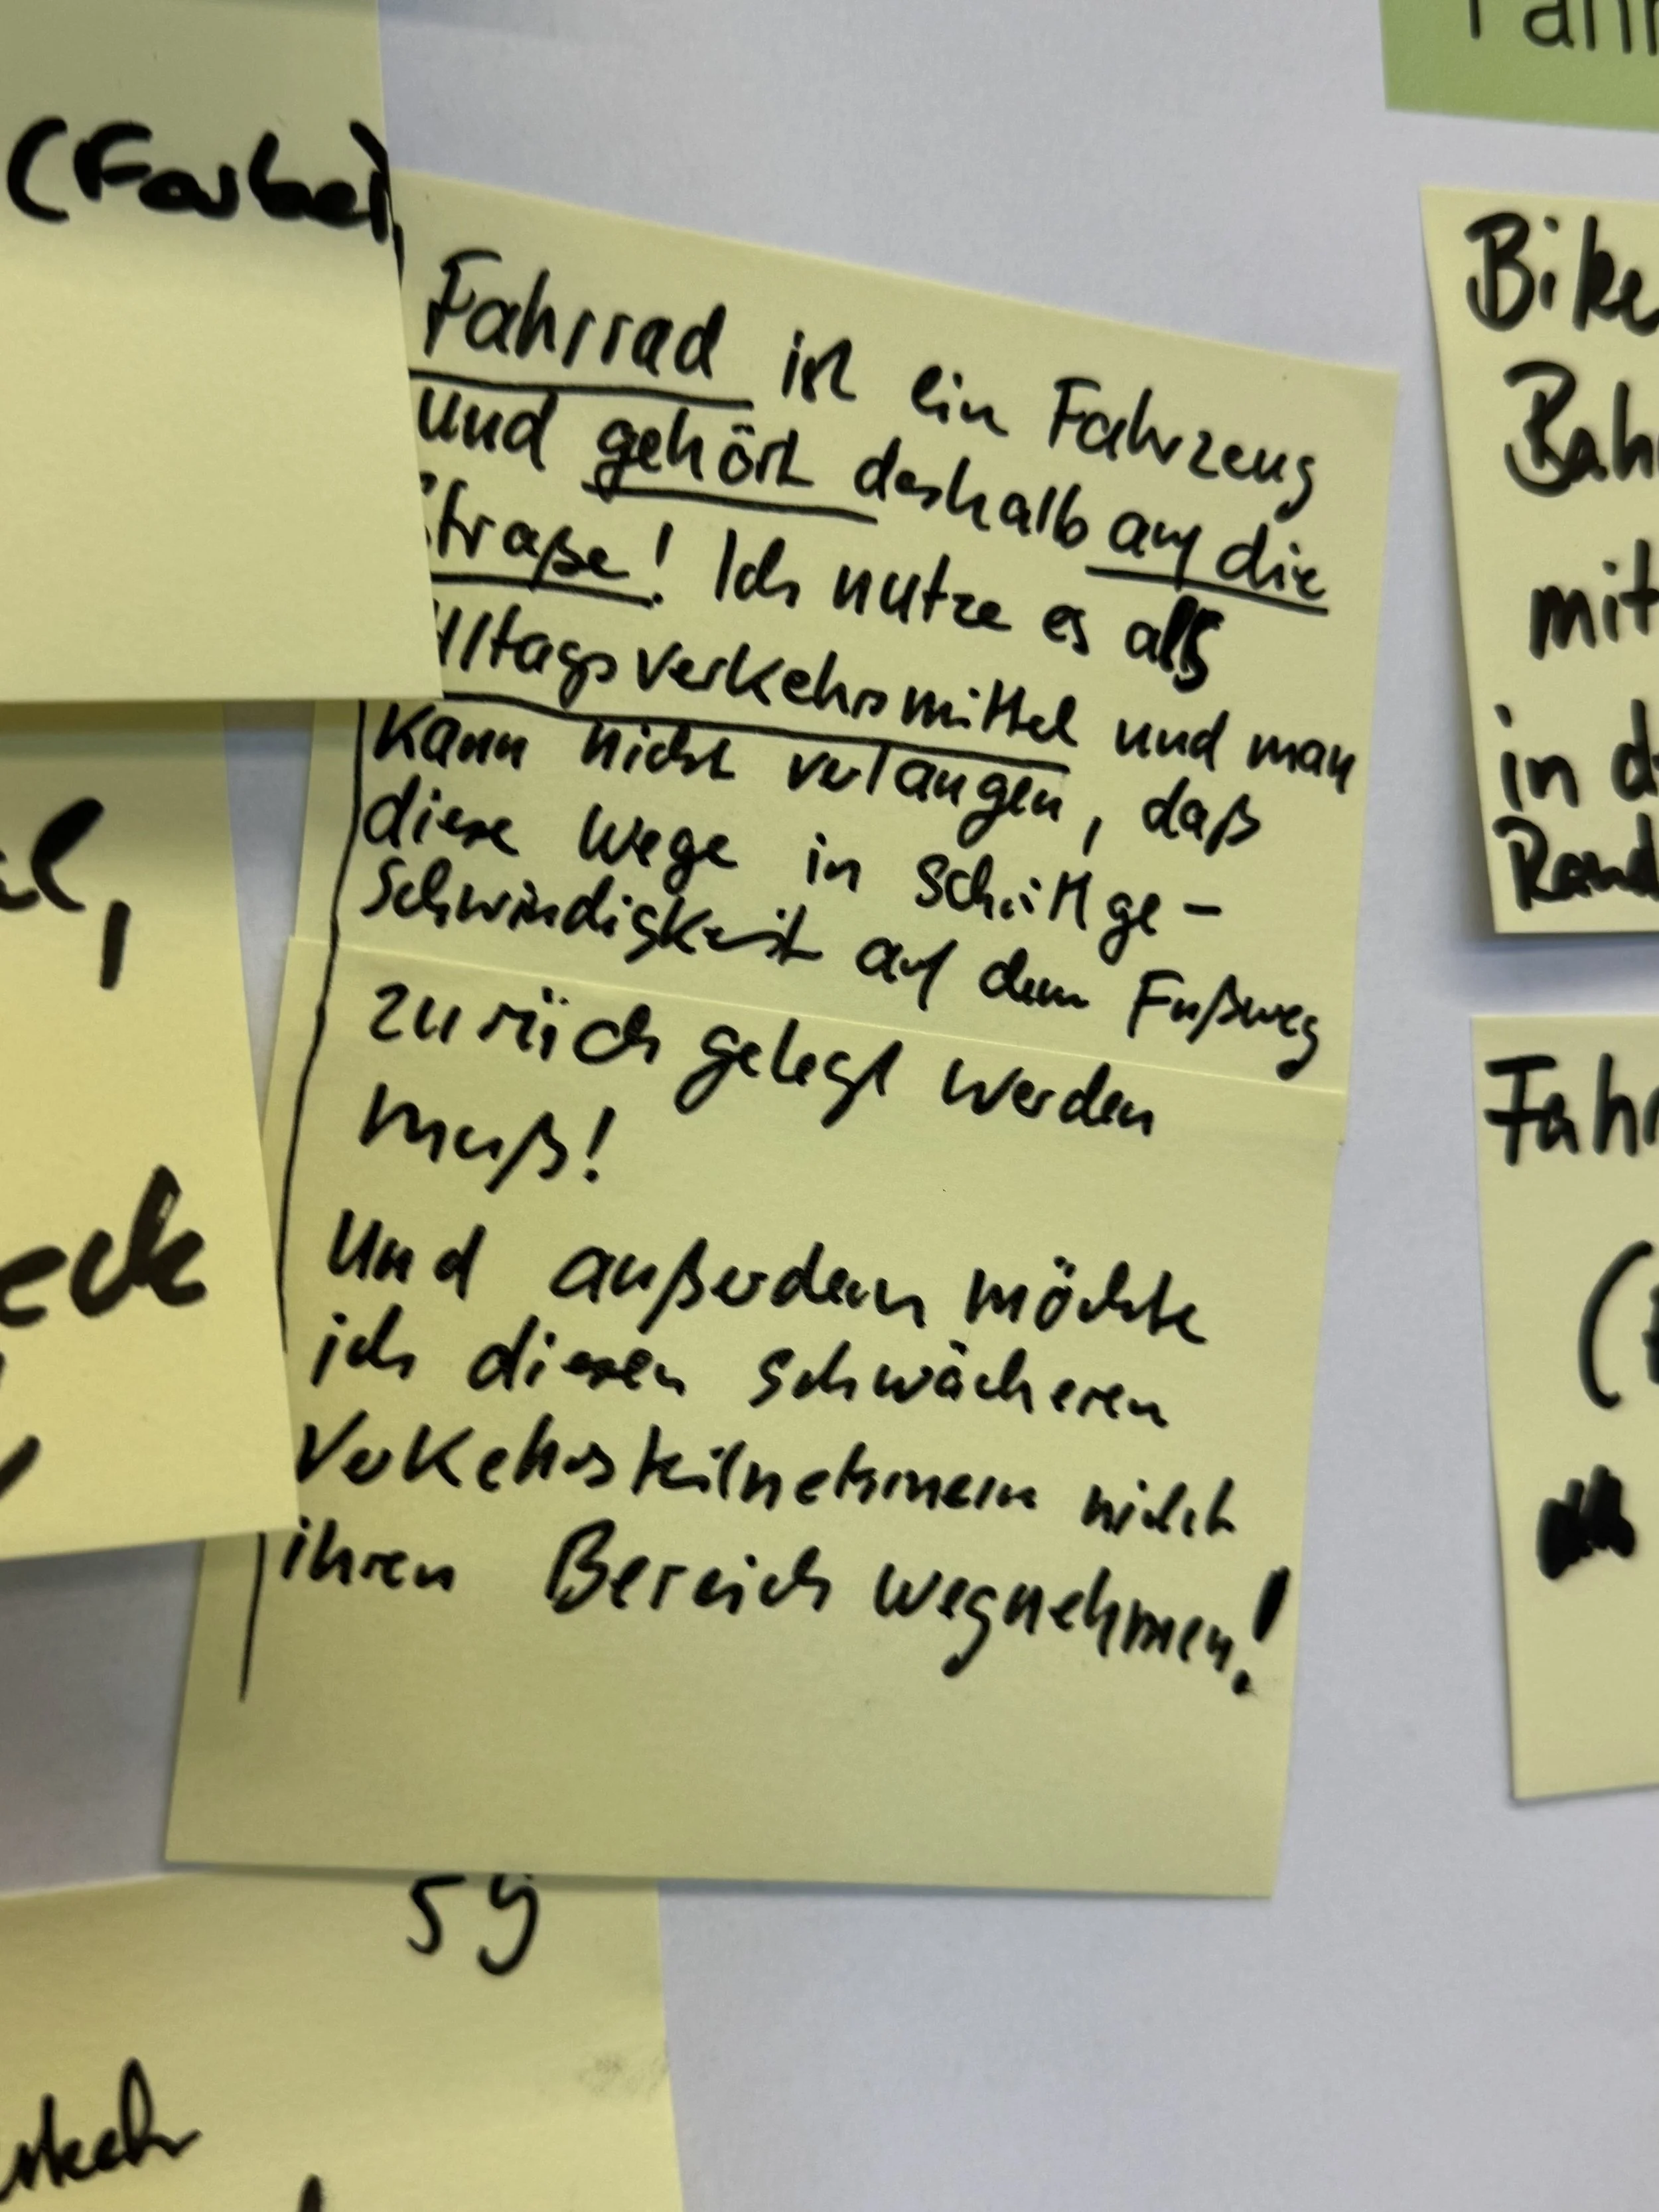 (Farbe)
Fahrrad ist ein Fahrzeug
und gehört deshalb auf die
Straße! Ich nutze es als
Alltagsverkehrsmittel und man
kann nicht verlangen, daß
diese Wege in Schrittge-
schwindigkeit auf dem Fußweg
zurück gelegt werden
muß!
Und außerdem möchte
ich diesen schwächeren
Verkehrsteilnehmern nicht
ihren Bereich wegnehmen!
Fahr
Bike
Bah
mit
in d
Rand
Fahr
(
eck